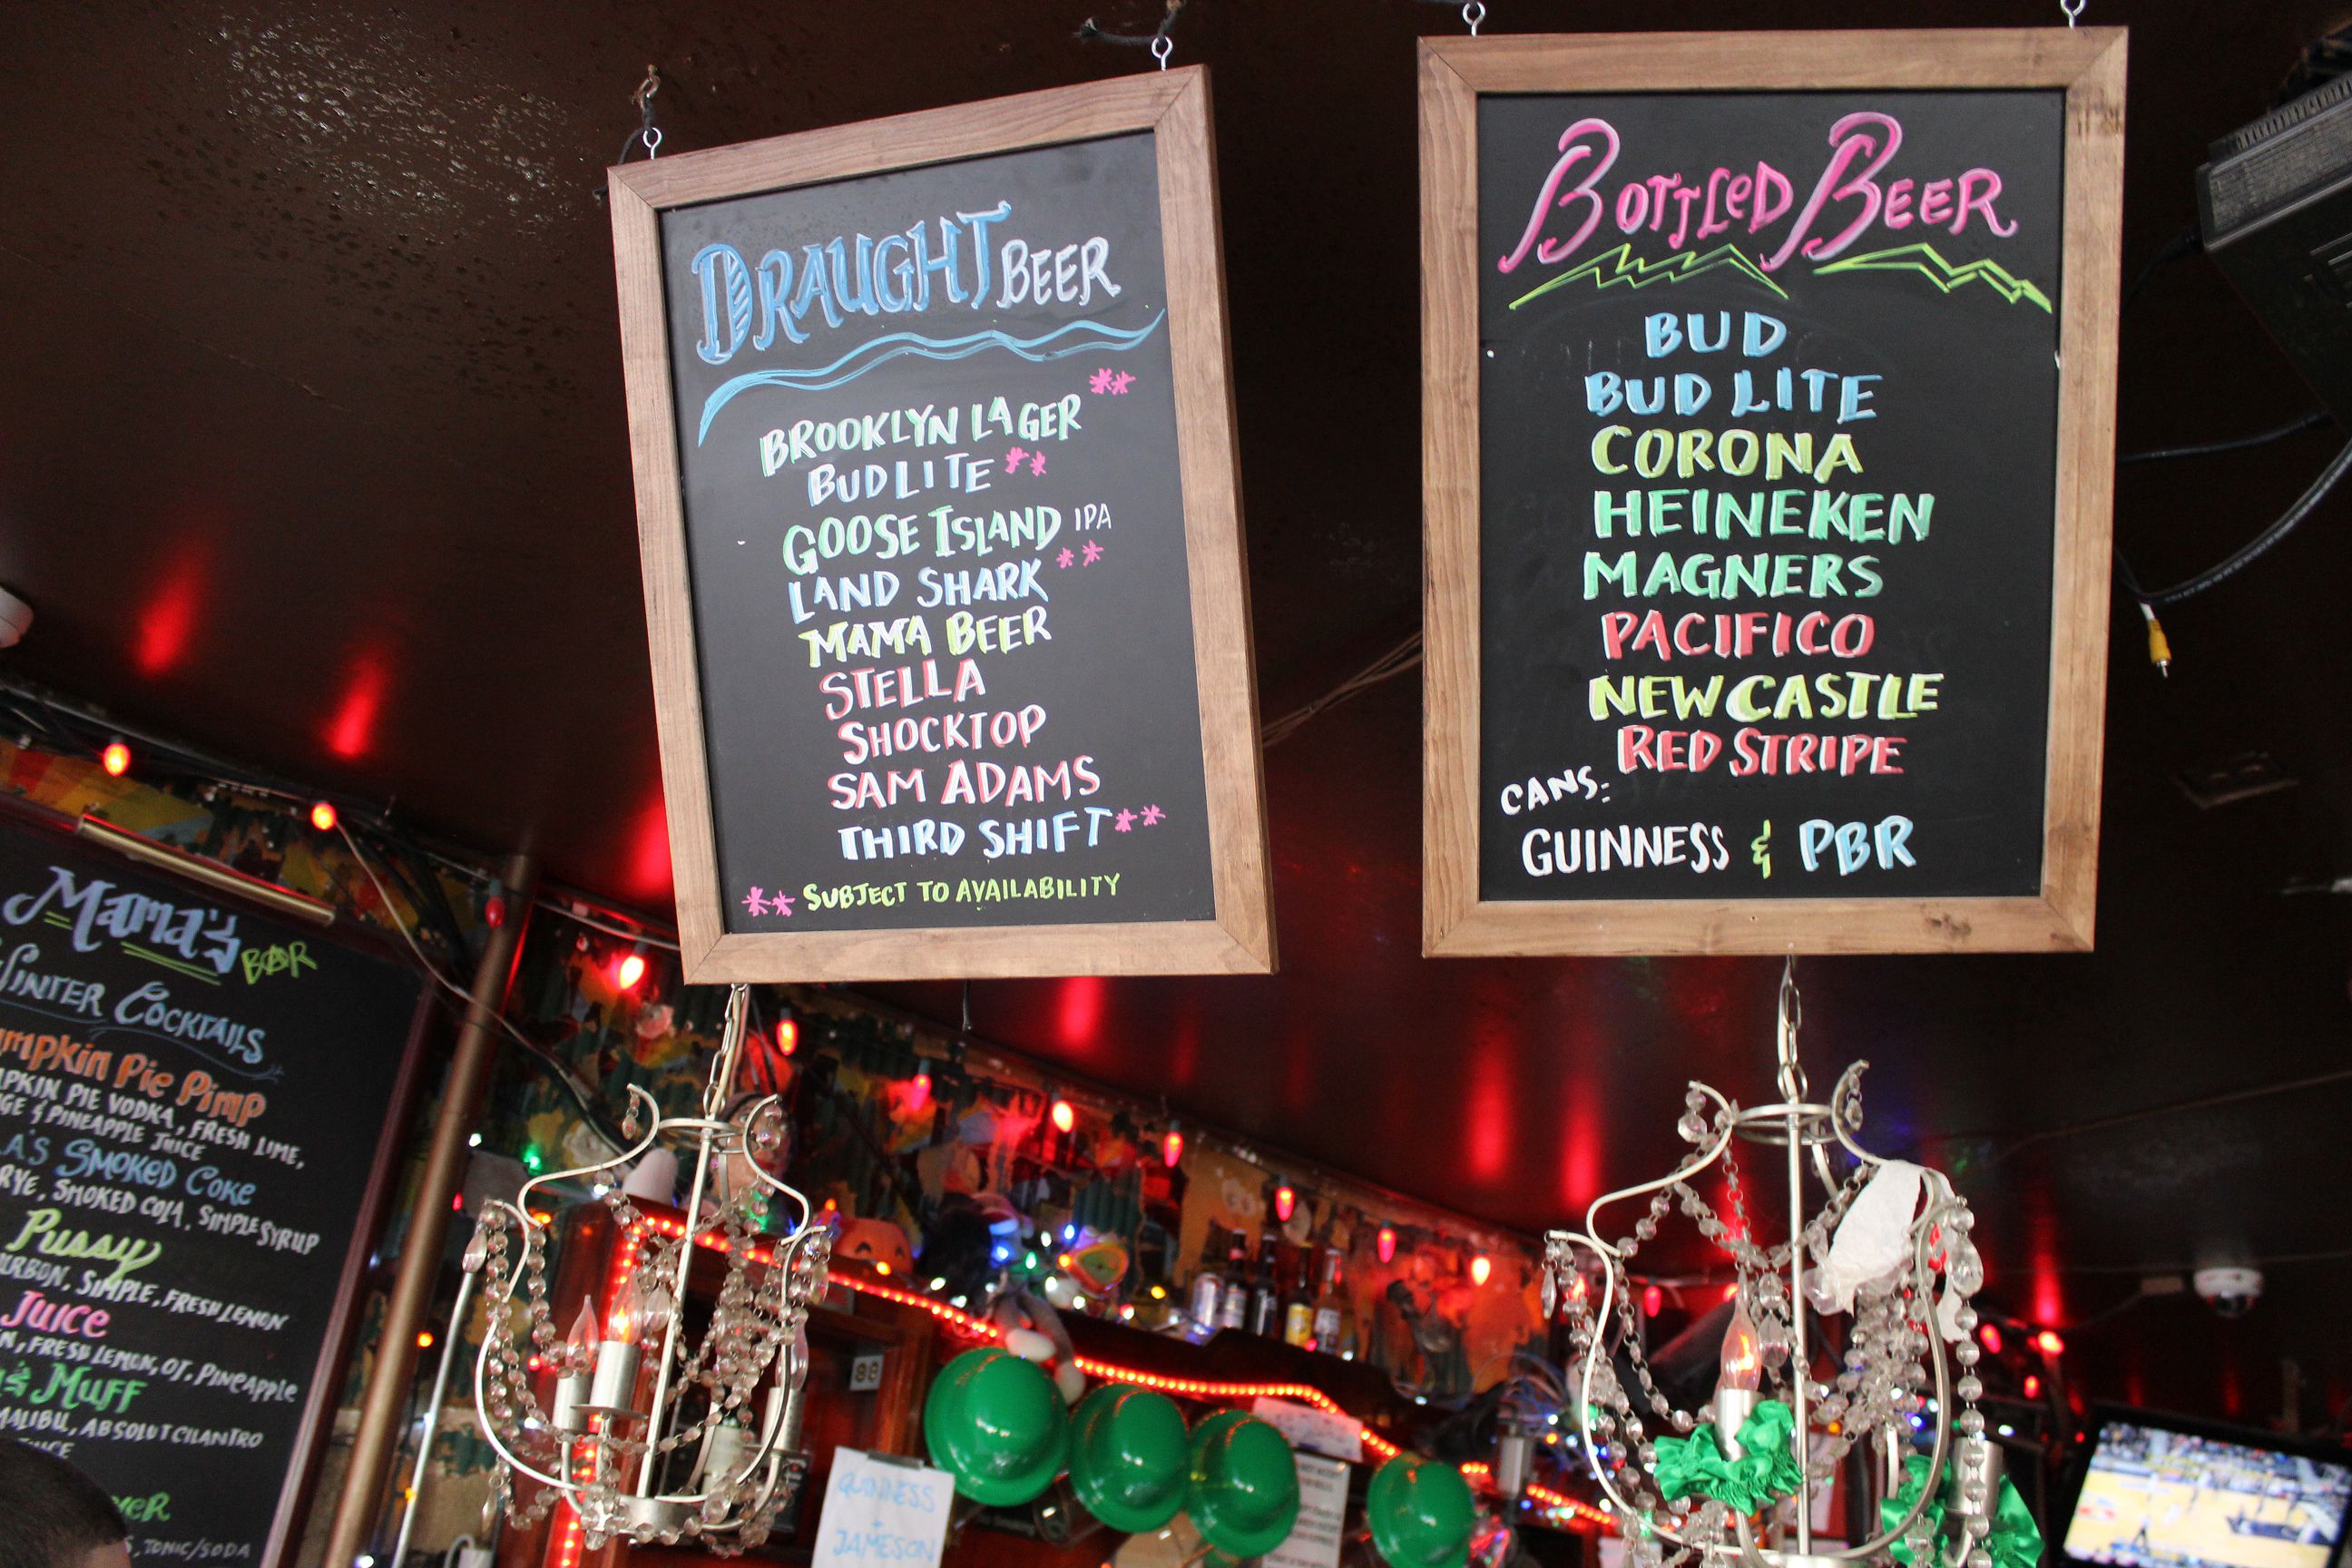 DRAUGHT BEER
BROOKLYN LAGER **
BUD LITE **
GOOSE ISLAND IPA
LAND SHARK **
MAMA BEER
STELLA
SHOCKTOP
SAM ADAMS
THIRD SHIFT **
** SUBJECT TO AVAILABILITY
BOTTLED BEER
BUD
BUD LITE
CORONA
HEINEKEN
MAGNERS
PACIFICO
NEWCASTLE
RED STRIPE
CANS:
GUINNESS & PBR
Mama's BAR
WINTER COCKTAILS
Pie Pimp
PIE VODKA, FRESH LIME,
& PINEAPPLE JUICE
SMOKED COKE
RYE, SMOKED COLA, SIMPLE SYRUP
Pussy
SIMPLE, FRESH LEMON
JUICE
FRESH LEMON, OJ, PINEAPPLE
MUFF
MALIBU, ABSOLUT CILANTRO
TONIC/SODA
GUINNESS
+
JAMESON